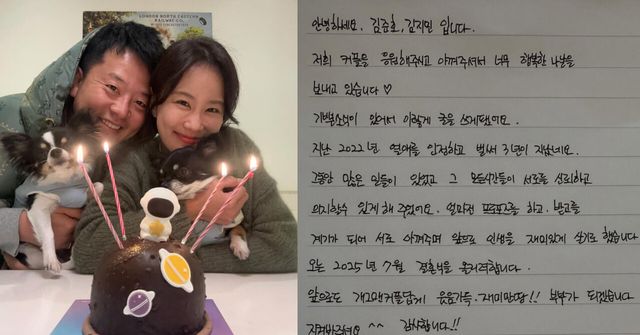 LONDON NORTH EASTERN
RAILWAY CO.
안녕하세요. 김준호, 김지민 입니다.
저희 커플을 응원해주시고 아껴주셔서 너무 행복한 나날을
보내고 있습니다♡
기쁜소식이 있어서 이렇게 글을 쓰게됐어요.
지난 2022년 열애를 인정하고 벌써 3년이 지났네요.
그동안 많은 일들이 있었고 그 모든시간들이 서로를 신뢰하고
의지할수 있게 해 주었어요. 얼마전 프로포즈를 하고, 받고를
계기가 되어 서로 아껴주며 앞으로 인생을 재미있게 살기로 했습니다
오는 2025년 7월 결혼식을 올리려합니다.
앞으로도 개그맨커플답게 웃음가득. 재미만땅!! 부부가 되겠습니다
지켜봐주세요 ^^ 감사합니다!!